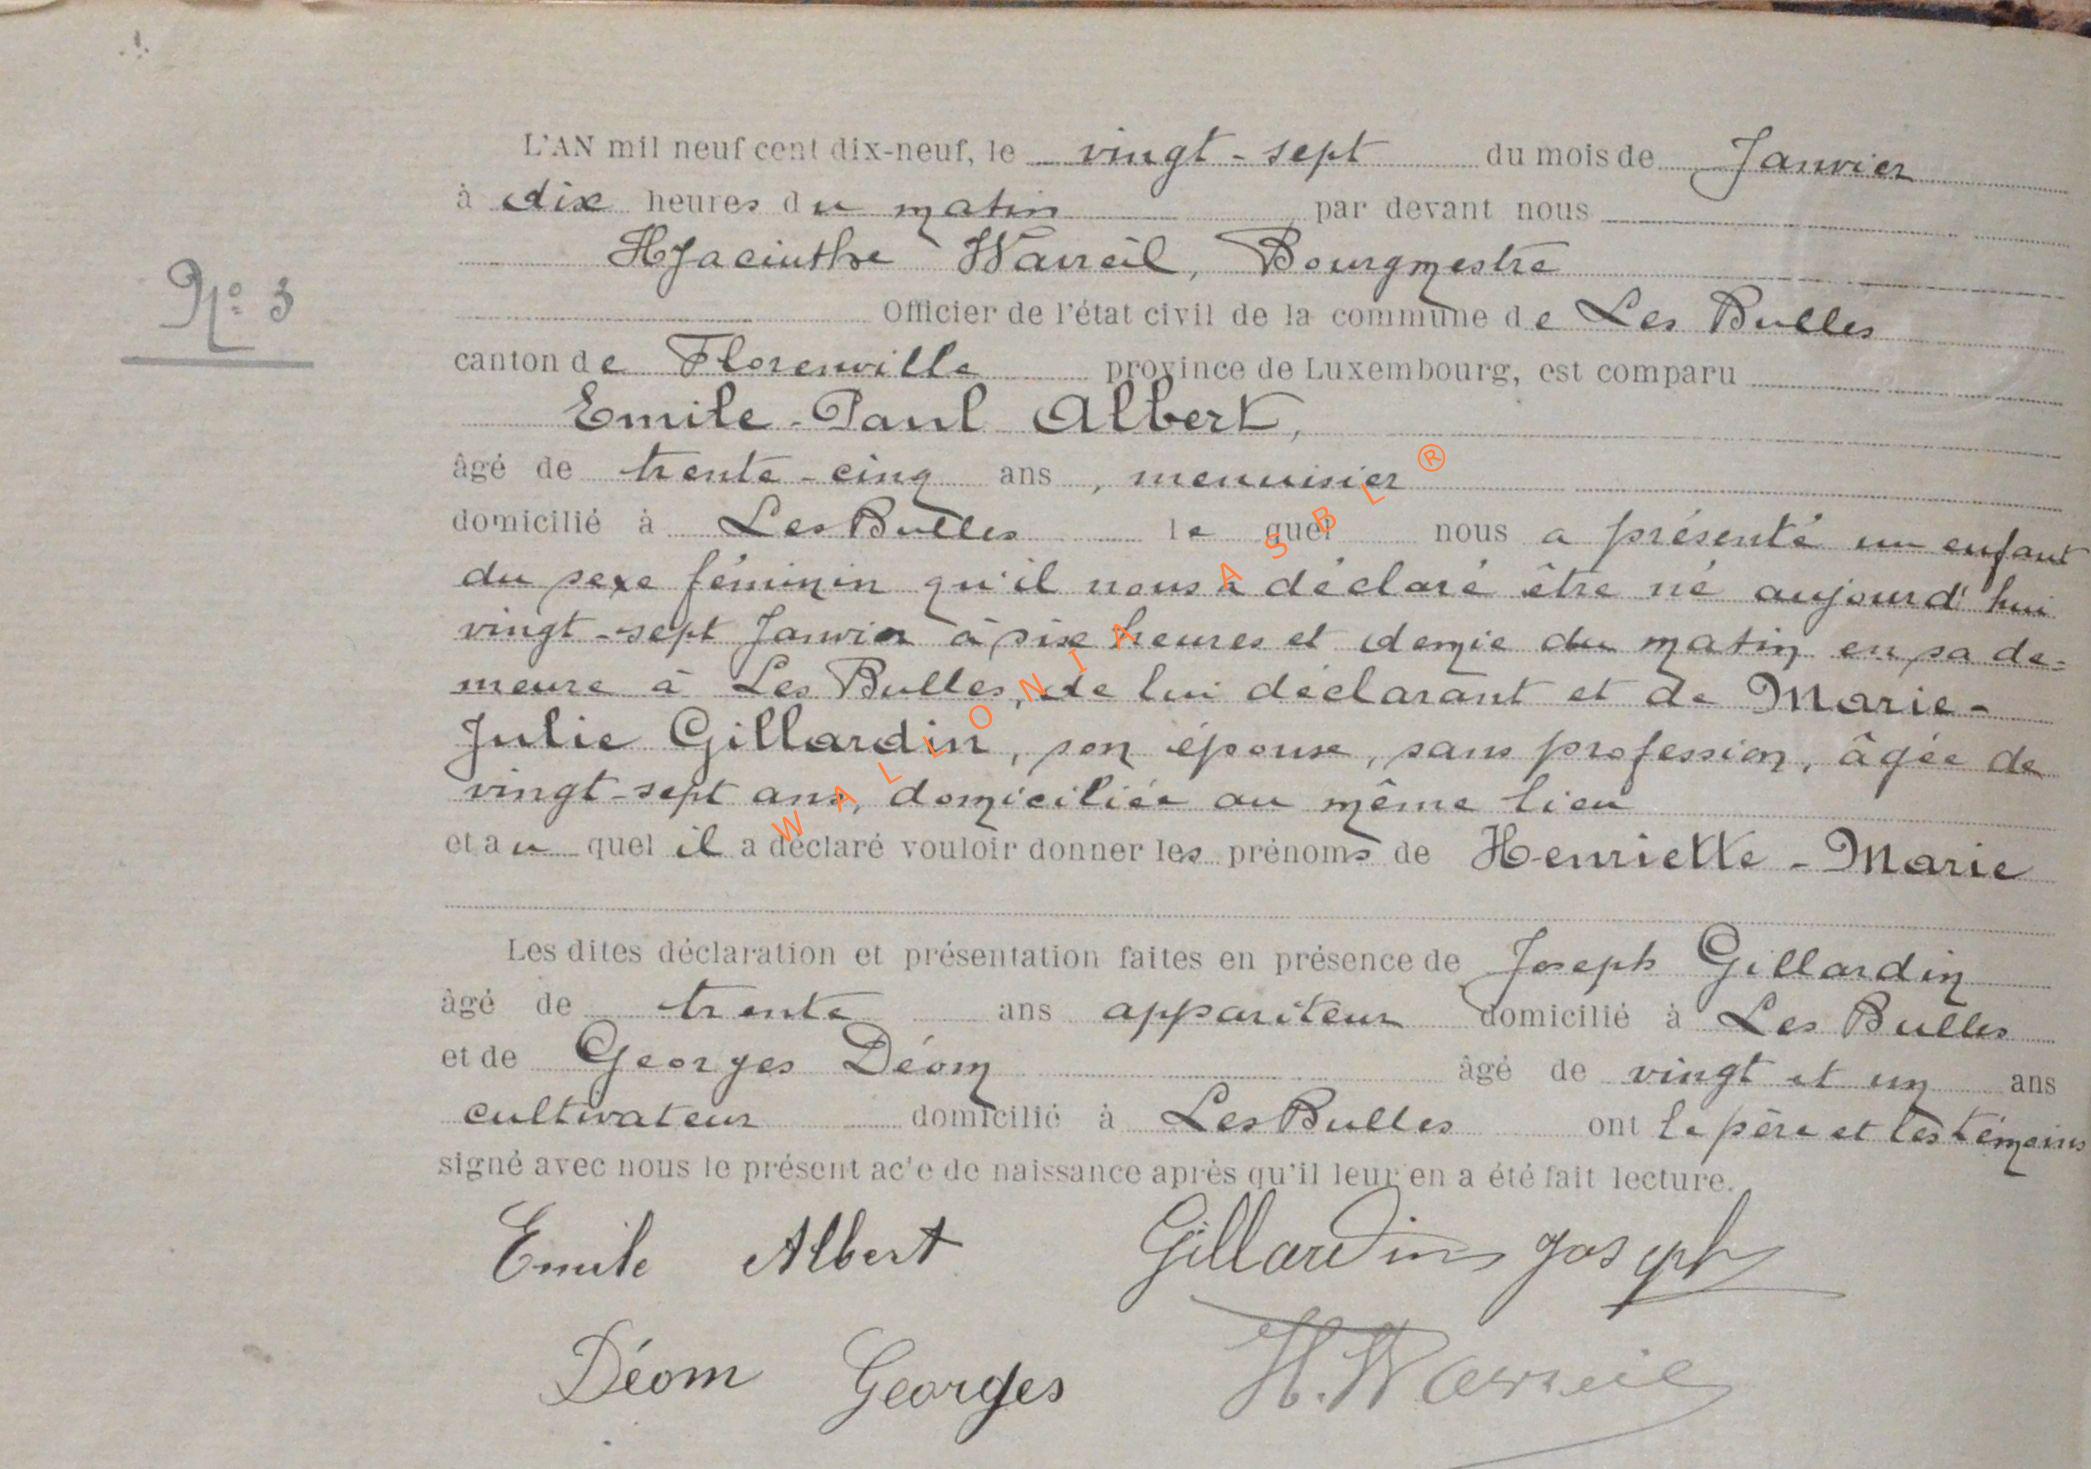 L'AN mil neuf cent dix-neuf, le vingt-sept du mois de Janvier
à dix heures du matin par devant nous
Hyacinthe Warreil, Bourgmestre
Officier de l'état civil de la commune de Les Bulles
N° 3
canton de Florenville province de Luxembourg, est comparu
Emile-Paul Albert,
âgé de trente-cinq ans, menuisier
domicilié à Les Bulles lequel nous a présenté un enfant
du sexe féminin qu'il nous a déclaré être né aujourd'hui
vingt-sept Janvier à six heures et demie du matin en sa de=
meure à Les Bulles, de lui déclarant et de Marie-
Julie Gillardin, son épouse, sans profession, âgée de
vingt-sept ans, domiciliée au même lieu
et au quel il a déclaré vouloir donner les prénoms de Henriette-Marie
Les dites déclaration et présentation faites en présence de Joseph Gillardin
âgé de trente ans appariteur domicilié à Les Bulles
et de Georges Déom âgé de vingt et un ans
cultivateur domicilié à Les Bulles ont le père et les témoins
signé avec nous le présent acte de naissance après qu'il leur en a été fait lecture.
Emile Albert Gillardin Joseph
Déom Georges H. Warreil
WALLONIA ASBL ®